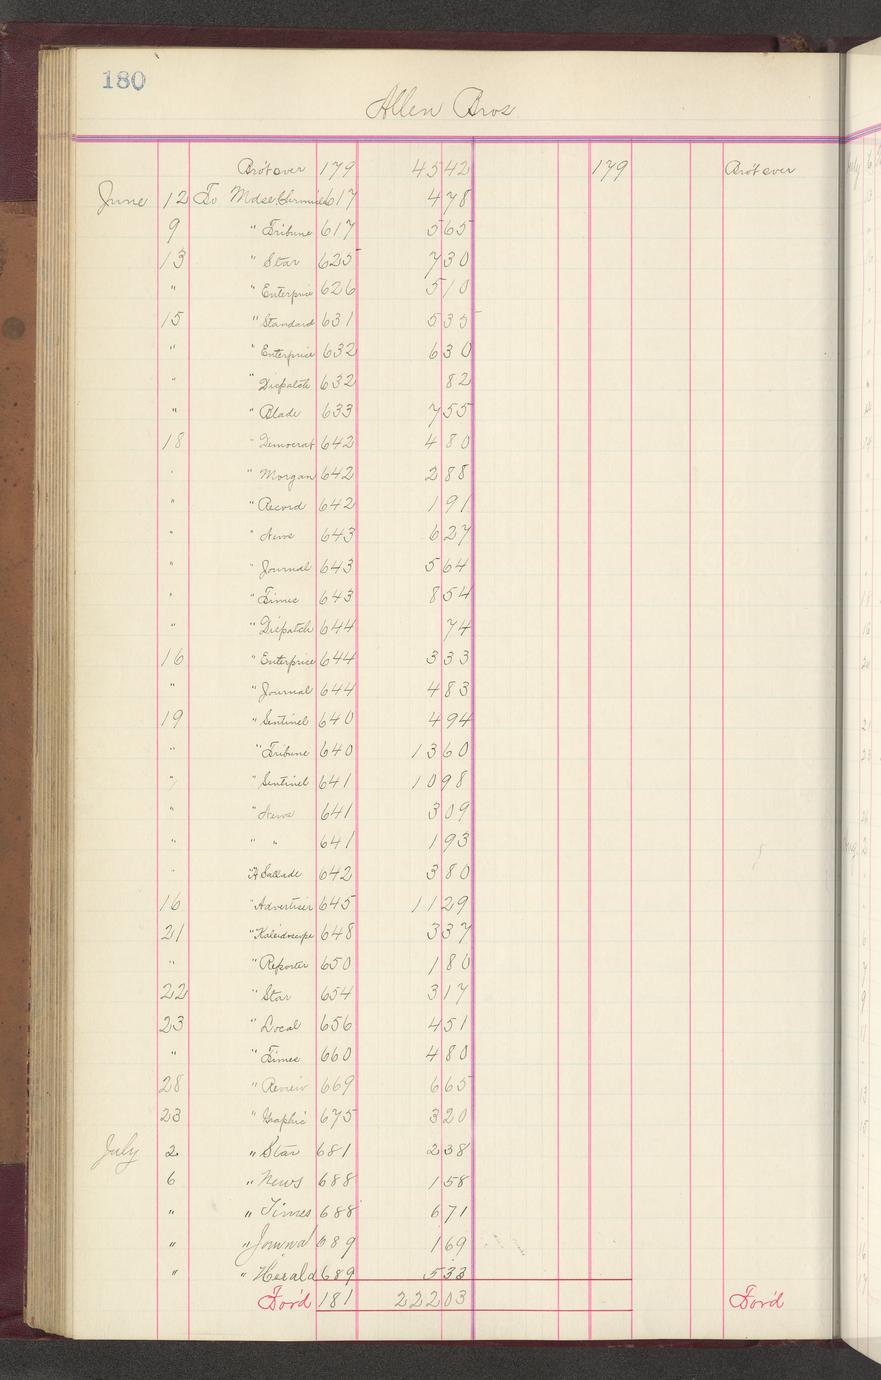 180
Allen Bros
Bro't over 179 45 42 179 Bro't over
June 12 To Mdse. Chronicle 617 4 78
9 " Tribune 617 5 65
13 " Star 625 7 30
" " Enterprise 626 5 10
15 " Standard 631 5 35
" " Enterprise 632 6 30
" " Dispatch 632 82
" " Blade 633 7 55
18 " Democrat 642 4 80
" " Morgan 642 2 88
" " Record 642 1 91
" " News 643 6 27
" " Journal 643 5 64
" " Times 643 8 54
" " Dispatch 644 74
16 " Enterprise 644 3 33
" " Journal 644 4 83
19 " Sentinel 640 4 94
" " Tribune 640 13 60
" " Sentinel 641 10 98
" " News 641 3 09
" " " 641 1 93
" " 642 3 80
16 " Advertiser 645 11 29
21 " Kaleidoscope 648 3 37
" " Reporter 650 1 80
22 " Star 654 3 17
23 " Local 656 4 51
" " Times 660 4 80
28 " Review 669 6 65
23 " Graphic 675 3 20
July 2 " Star 681 2 38
6 " News 688 1 58
" " Times 688 6 71
" " Journal 689 1 69
" " Herald 689 5 33
For'd 181 222 03 For'd